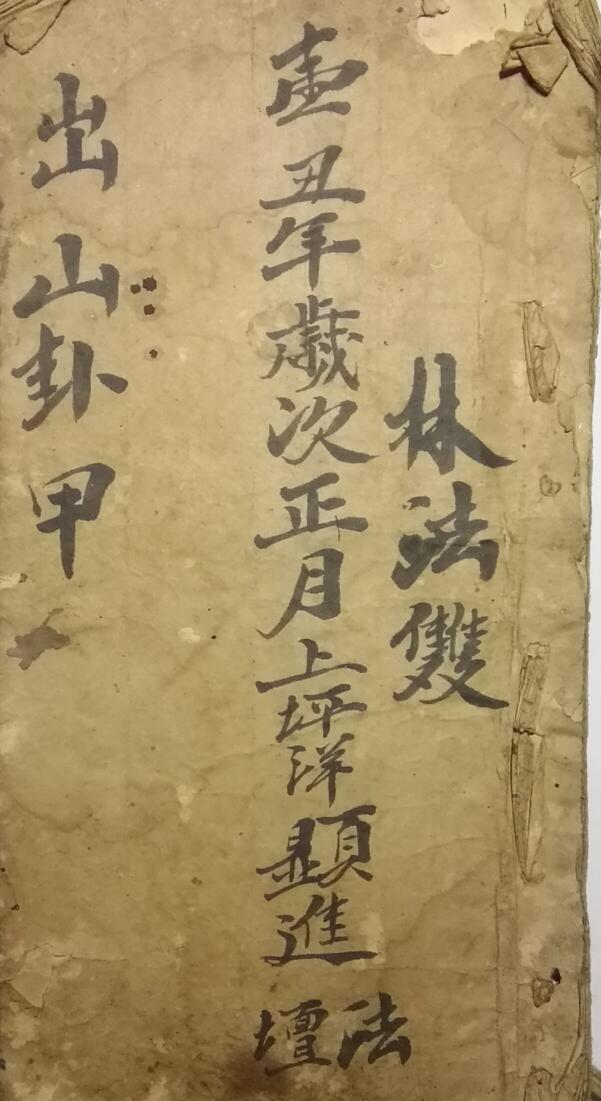 林法雙
丑年歲次正月上坪洋顕進法壇
出山卦甲